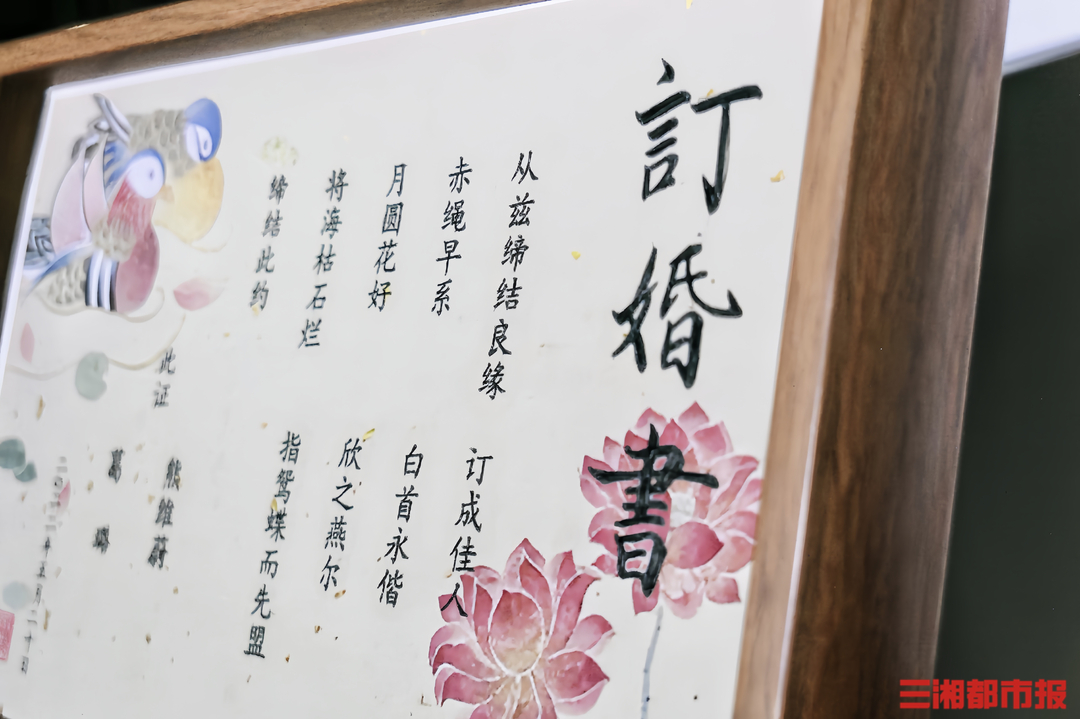 訂婚書
从兹缔结良缘 订成佳人
赤绳早系 白首永偕
月圆花好 欣之燕尔
将海枯石烂 指鸳蝶而先盟
缔结此约
此证
熊维蔚
葛
年五月二十日
三湘都市报